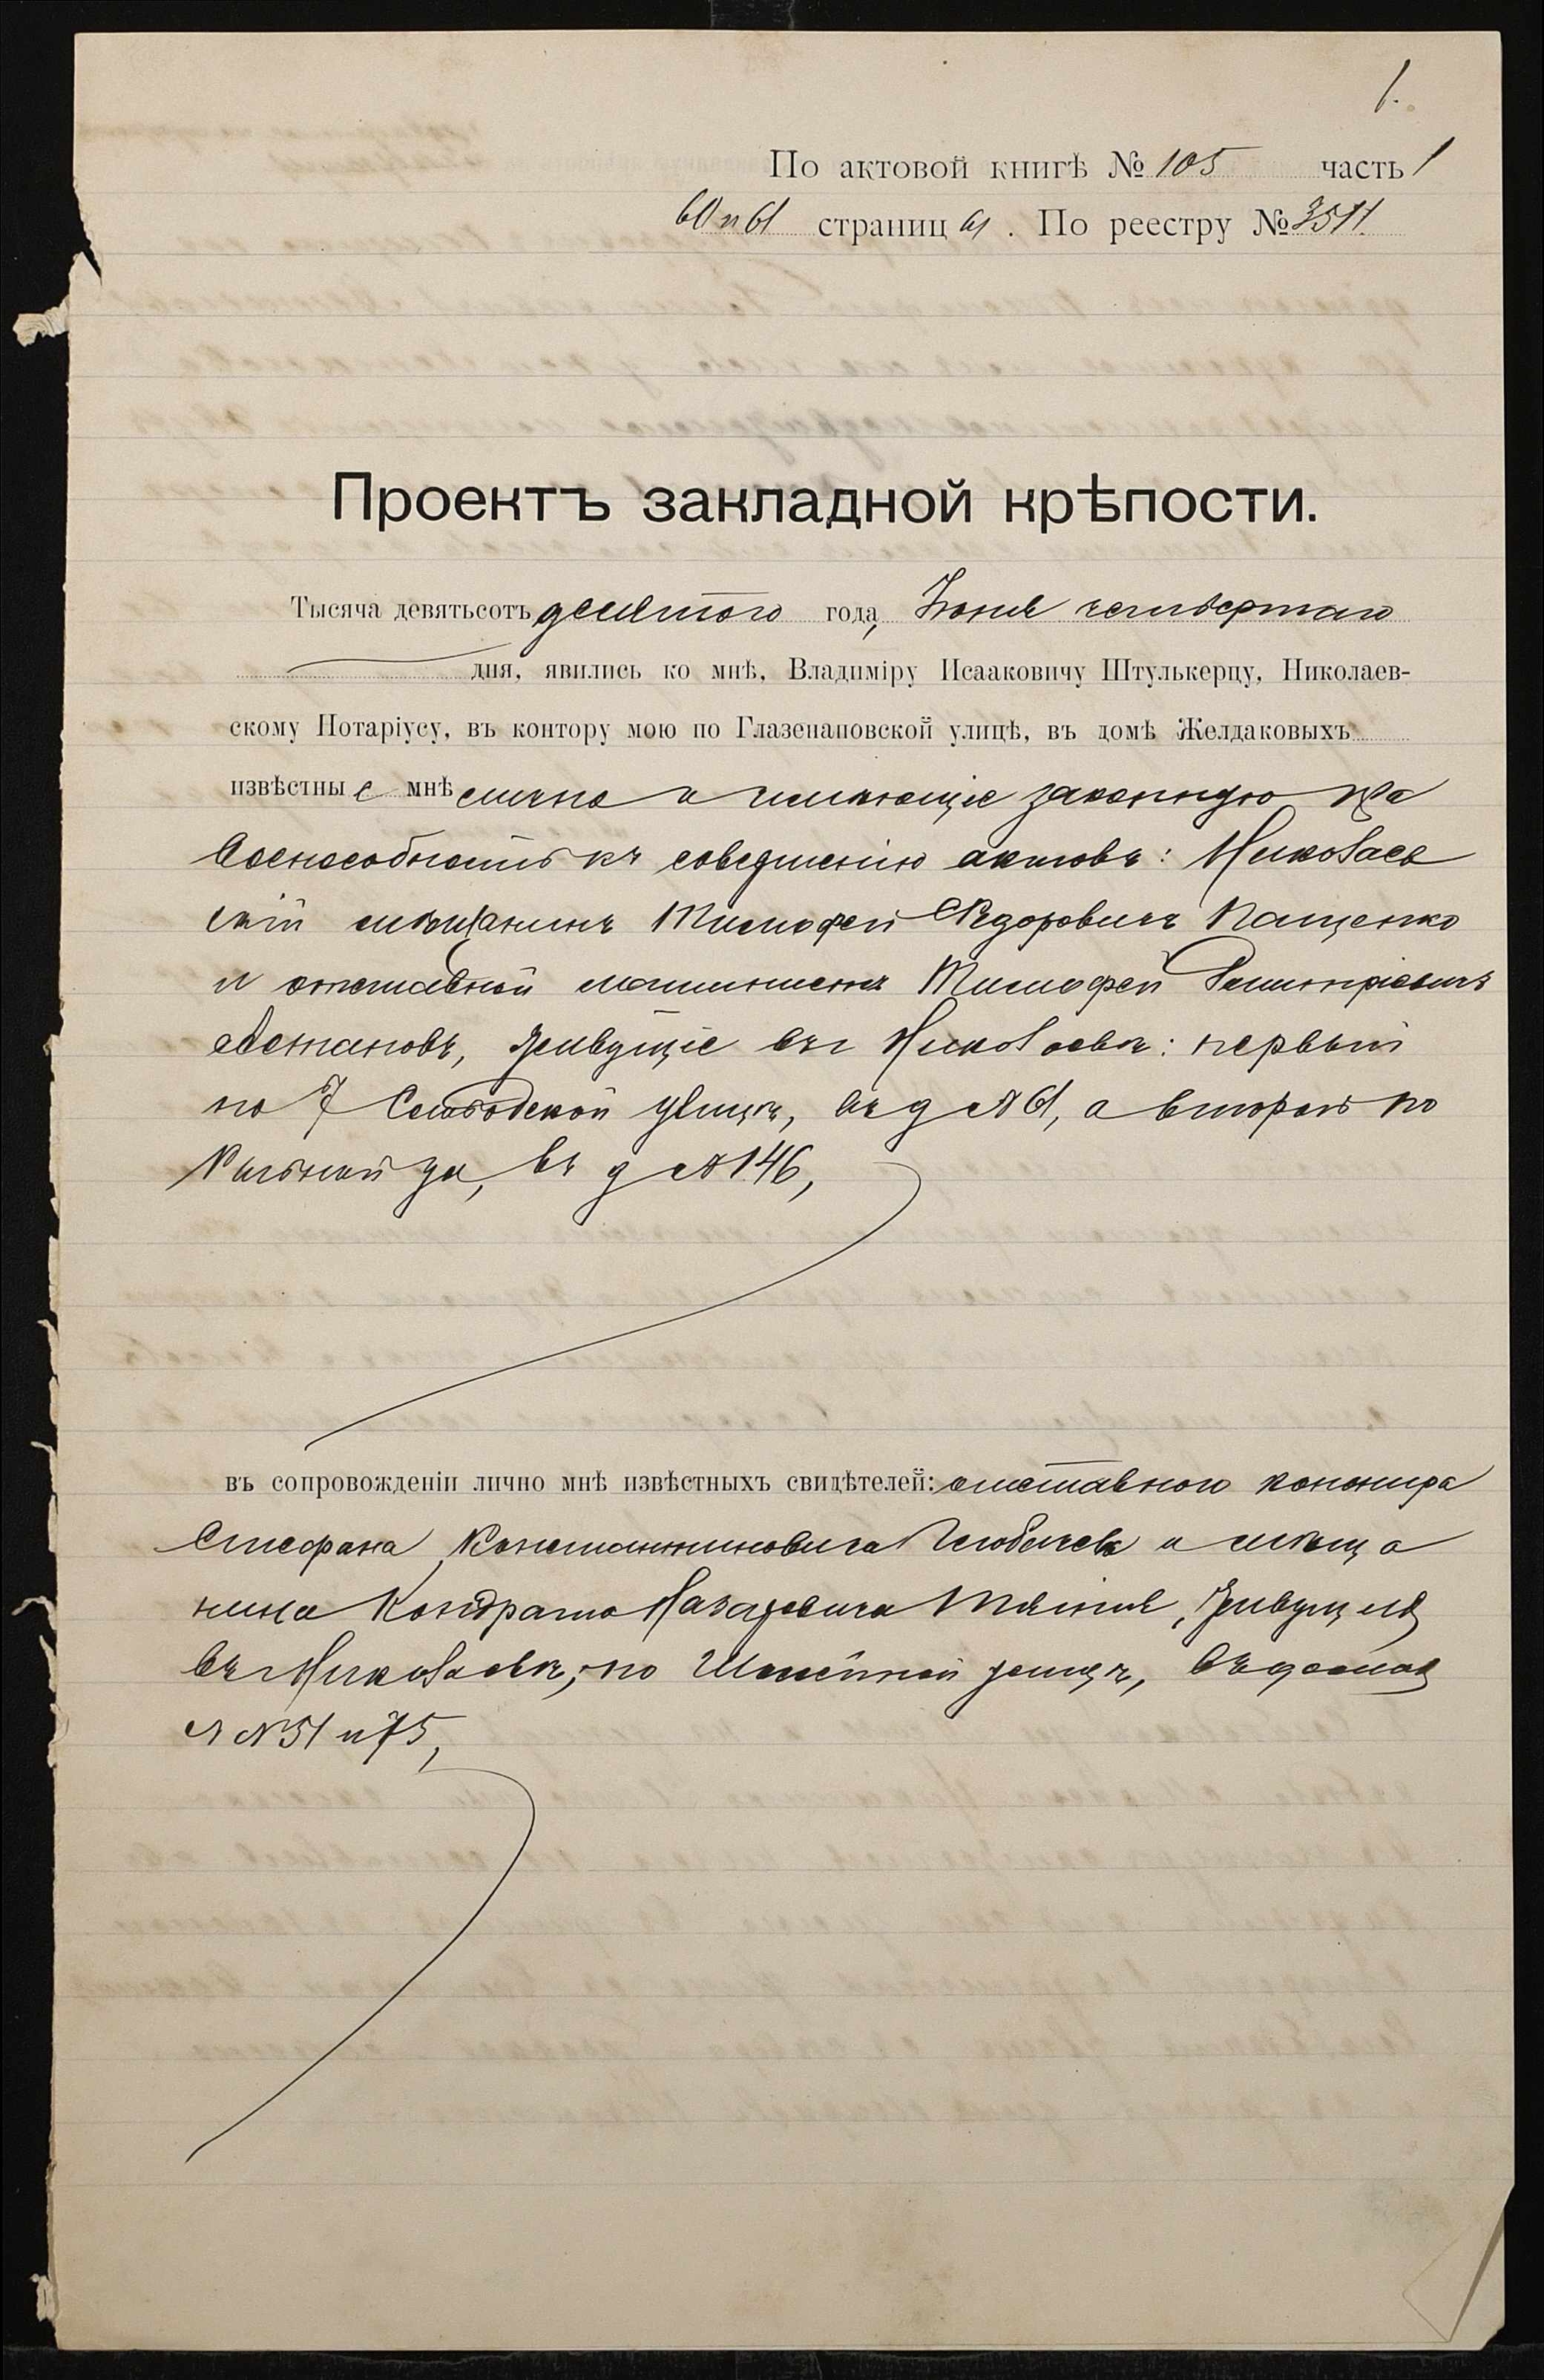 1.
По актовой книгѣ № 105 часть 1
60 и 61 страницы. По реестру № 3511.
Проектъ закладной крѣпости.
Тысяча девятьсотъ десятого года, Іюня четвертаго
дня, явились ко мнѣ, Владиміру Исааковичу Штулькерцу, Николаев-
скому Нотаріусу, въ контору мою по Глазенаповской улицѣ, въ домѣ Желдаковыхъ
извѣстные мнѣ лично и имѣющіе законную пра
воспособность къ совершенію актовъ: Николаев
скій мѣщанинъ Тимофей Федоровичъ Пащенко
и отставной машинистъ Тимофей
живущіе въ Николаевѣ: первый
по 7 Слободской улицѣ, въ д № 61, а второй по
ул, въ д № 146,
въ сопровожденіи лично мнѣ извѣстныхъ свидѣтелей: отставного
Стефана Константиновича и мѣща
нина Кондрата Назаровича живущихъ
въ Николаевѣ, по улицѣ, въ домах
ъ № 51 и 75,